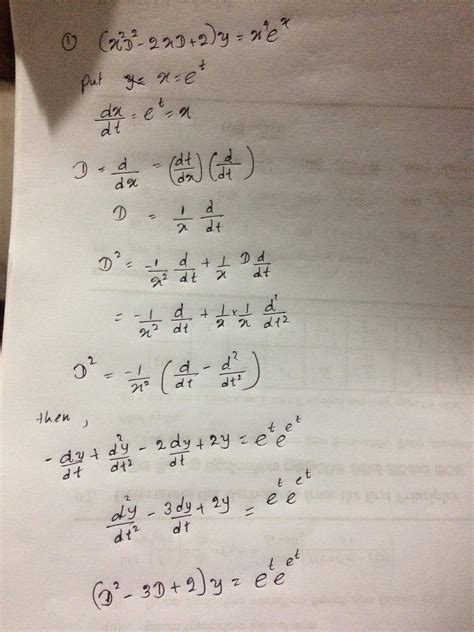 ① (x²D² - 2xD + 2)y = x⁴eˣ
put y= x = e^t
dx/dt = e^t = x
D = d/dx = (dt/dx)(d/dt)
D = 1/x d/dt
D² = -1/x² d/dt + 1/x D d/dt
= -1/x² d/dt + 1/x × 1/x d²/dt²
D² = -1/x² (d/dt - d²/dt²)
then,
-dy/dt + d²y/dt² - 2dy/dt + 2y = e^t e^(e^t)
d²y/dt² - 3dy/dt + 2y = e^t e^(e^t)
(D² - 3D + 2)y = e^t e^(e^t)